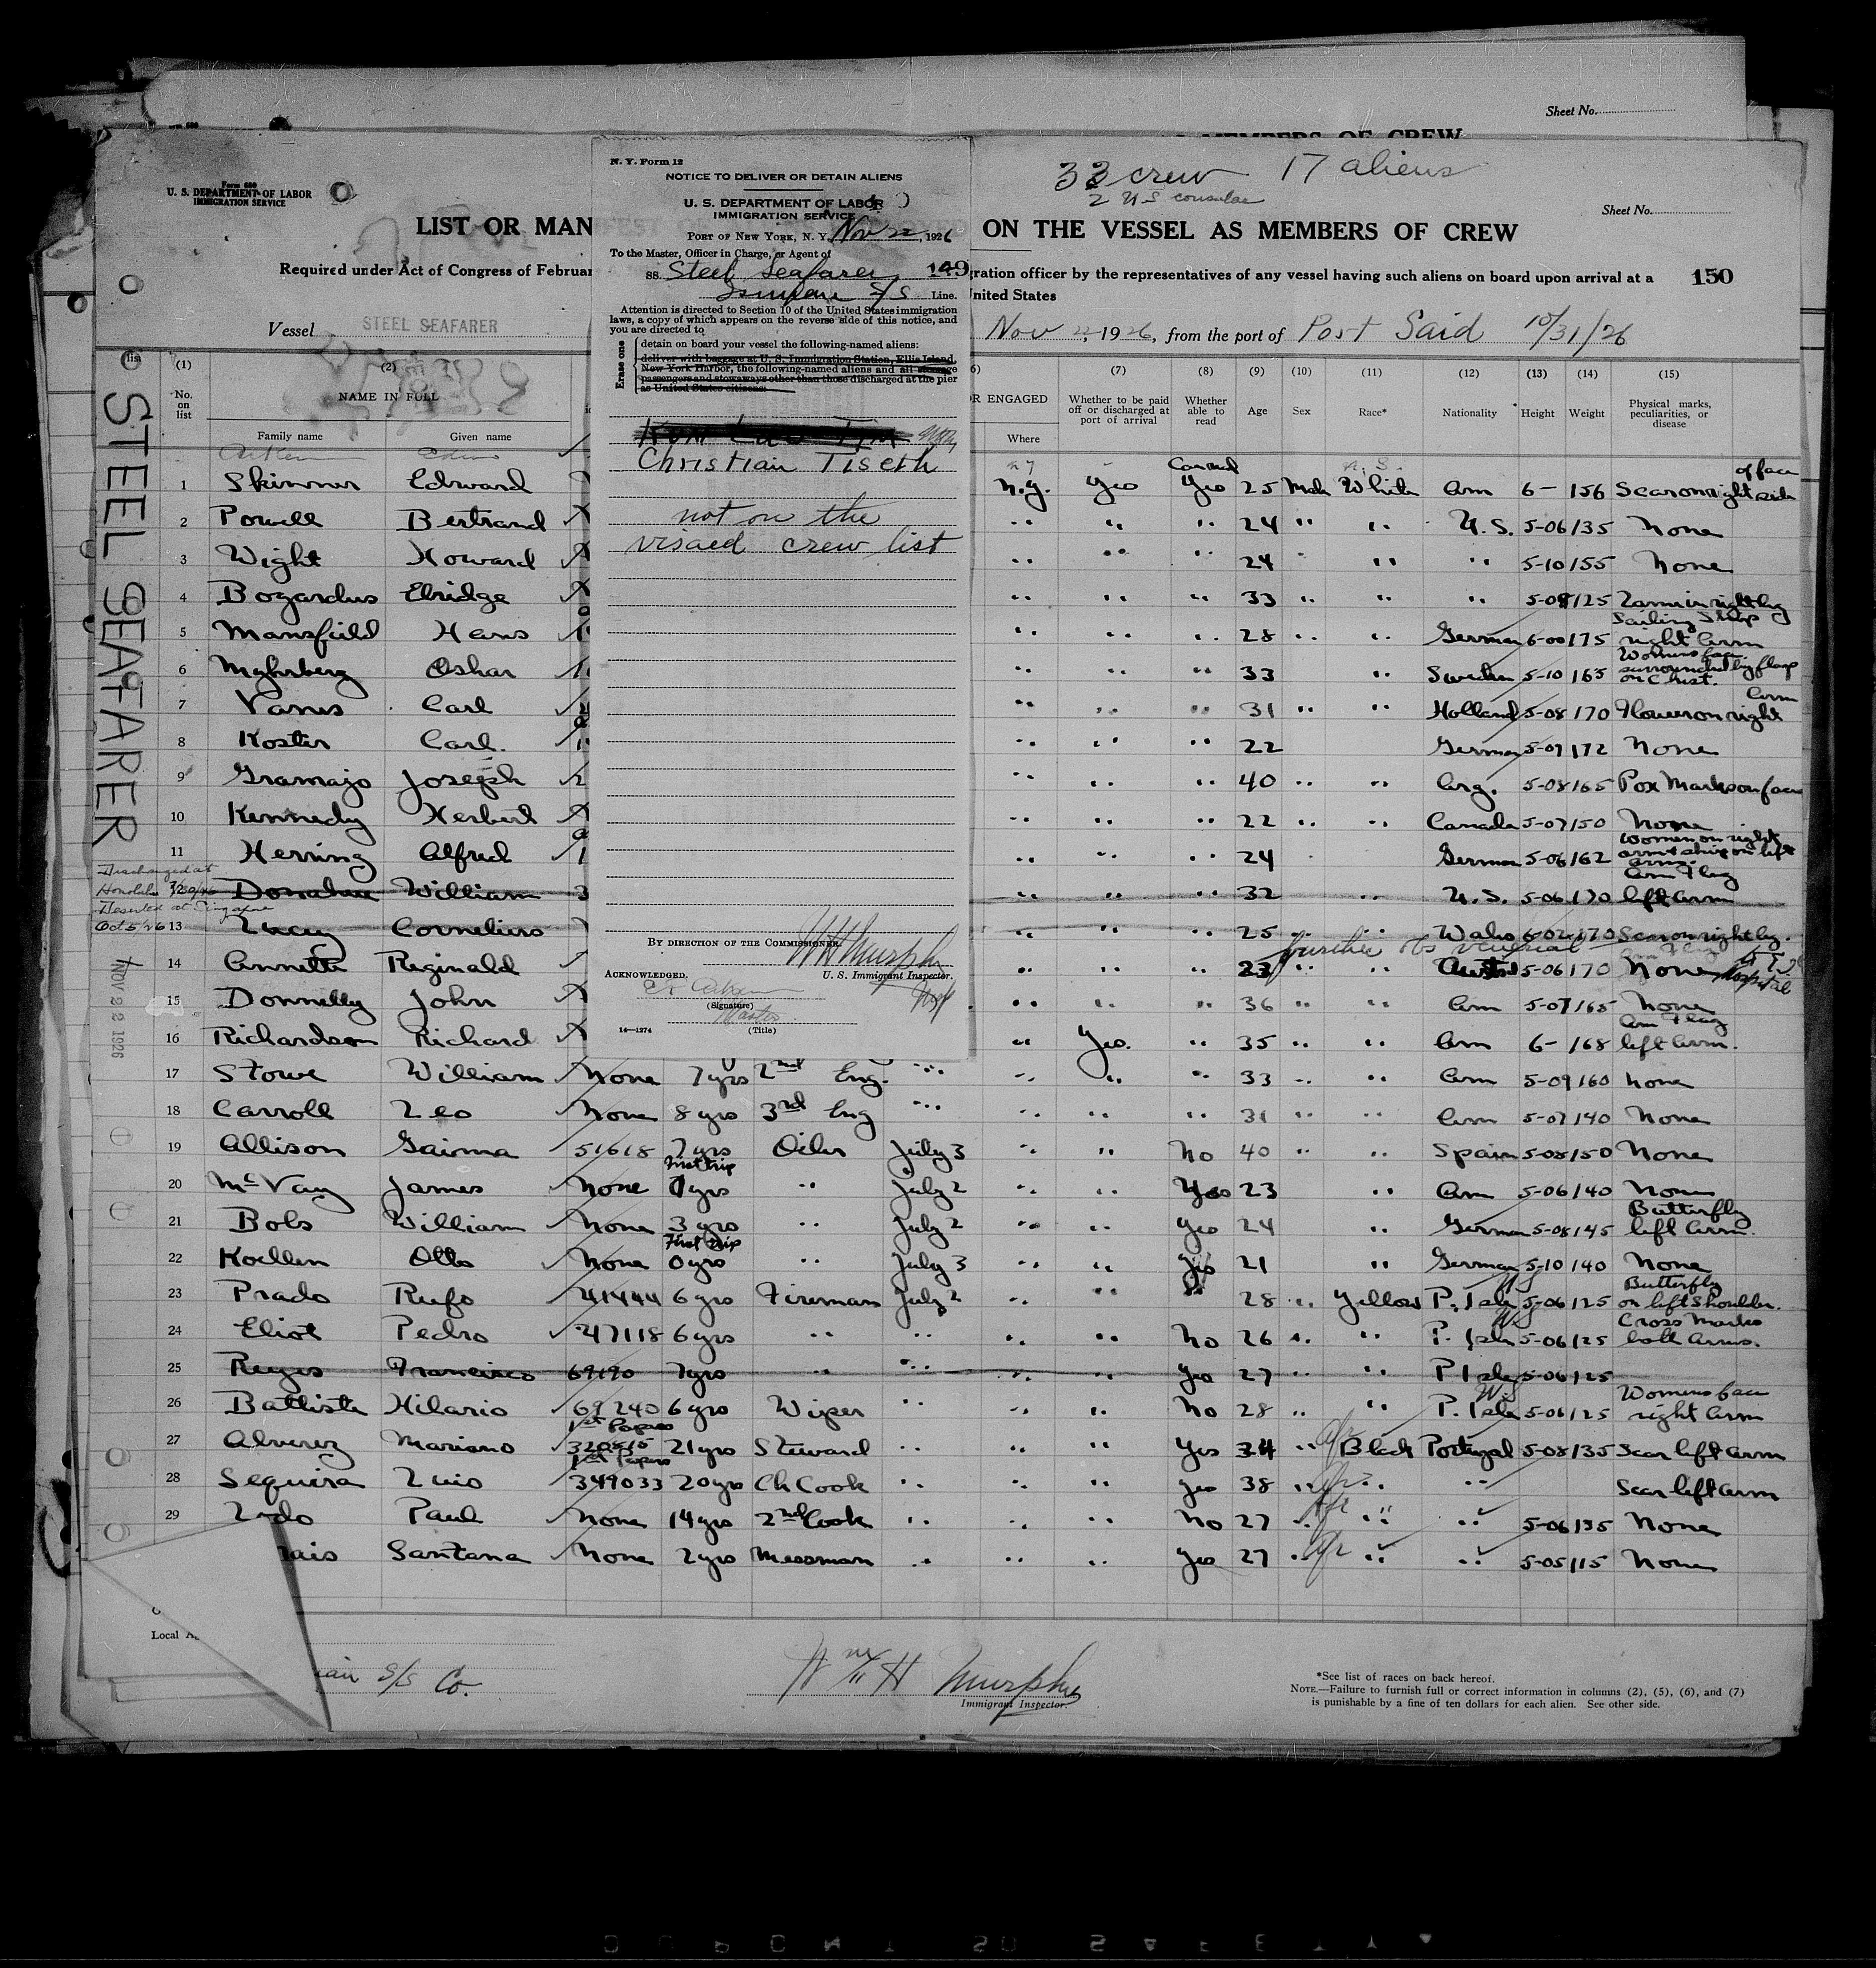 Sheet No.
MEMBERS OF CREW
33 crew 17 aliens
2 U S consular
Form 680
U. S. DEPARTMENT OF LABOR
IMMIGRATION SERVICE
Sheet No.
LIST OR MAN
ON THE VESSEL AS MEMBERS OF CREW
Required under Act of Congress of Februar
gration officer by the representatives of any vessel having such aliens on board upon arrival at a
150
United States
Vessel STEEL SEAFARER
Nov 22, 1926, from the port of Port Said 10/31/26
N. Y. Form 12
NOTICE TO DELIVER OR DETAIN ALIENS
U. S. DEPARTMENT OF LABOR
IMMIGRATION SERVICE
PORT OF NEW YORK, N. Y. Nov 22, 1926
To the Master, Officer in Charge, or Agent of
SS. Steel Seafarer, 149
S/S Line.
Attention is directed to Section 10 of the United States immigration
laws, a copy of which appears on the reverse side of this notice, and
you are directed to
Erase one
detain on board your vessel the following-named aliens:
deliver with baggage at U. S. Immigration Station, Ellis Island,
New York Harbor, the following-named aliens and all steerage
passengers and stowaways other than those discharged at the pier
as United States citizens:
Christian Tiseth
not on the
visaed crew list
BY DIRECTION OF THE COMMISSIONER.
WH Murphy
U. S. Immigrant Inspector.
ACKNOWLEDGED.
(Signature)
Master
(Title)
14—1274
STEEL SEAFARER
list (1) (2) (7) (8) (9) (10) (11) (12) (13) (14) (15)
No. on list NAME IN FULL OR ENGAGED Whether to be paid off or discharged at port of arrival Whether able to read Age Sex Race* Nationality Height Weight Physical marks, peculiarities, or disease
Family name Given name Where
Aiken Edwin
1 Skinner Edward N.Y. Yes Yes 25 Male White Am 6- 156 Scar on right side of face
2 Powell Bertrand " " " 24 " " U.S. 5-06 135 None
3 Wight Howard " " " 24 " " 5-10 155 None
4 Bogardus Elridge " " " 33 " " " 5-08 125 Lame in right leg
5 Mansfield Hans " " " 28 " " German 6-00 175 Sailing Ship right Arm
6 Myhrberg Oskar " " " 33 " Sweden 5-10 165 Womens face surrounded by flags on Chest.
7 Vanes Carl " " " 31 " " Holland 5-08 170 Flower on right Arm
8 Koster Carl. " " " 22 German 5-07 172 None
9 Gramajo Joseph " " " 40 " " Arg. 5-08 165 Pox Marks on face
10 Kennedy Herbert " " " 22 " " Canada 5-07 150 None
11 Herring Alfred " " " 24 German 5-06 162 Women on right arm + ship on left Arm.
Discharged at
Honolulu
Donahue William 3 " " " 32 " U.S. 5-06 170 Am Flag left Arm
Deserted at Singapore
Oct 5/26 13 Lucey Cornelius 25 " " Wales 6-02 170 Scar on right leg.
14 Annetts Reginald " " " 23 " " 5-06 170 None
Hospital
15 Donnelly John " " " 36 " " Am 5-07 165 None
16 Richardson Richard " Yes. " 35 " " Am 6- 168 Am Flag left Arm.
17 Stowe William None 7 yrs 2nd Eng. " " " " 33 " " Am 5-09 160 None
18 Carroll Leo None 8 yrs 3rd Eng " " " " 31 " " Am 5-07 140 None
19 Allison Gairma 51618 7 yrs Oiler July 3 " " No 40 " " Spain 5-08 150 None
20 McVay James None First trip 0 yrs " July 2 " " Yes 23 " Am 5-06 140 None
21 Bols William None 3 yrs " July 2 " " Yes 24 " German 5-08 145 Butterfly left Arm.
22 Koellen Otto None First trip 0 yrs " July 3 " " Yes 21 " German 5-10 140 None
23 Prado Rufo 41444 6 yrs Fireman July 2 " " " 28 " Yellow P. Isle 5-06 125 Butterfly on left Shoulder.
24 Eliot Pedro 47118 6 yrs " " " " No 26 " " P. Isle 5-06 125 Cross Marks both Arms.
25 Reyes Francisco 69190 7 yrs " " " " Yes 27 " P Isle 5-06 125
26 Battista Hilario 69240 6 yrs Wiper " " " No 28 " " P. Isle 5-06 125 Womens face right Arm
27 Alverez Mariano 1st Papers 320515 21 yrs Steward " " " Yes 34 " Afr Black Portugal 5-08 135 Scar left Arm
28 Sequira Luis 1st Papers 349033 20 yrs Ch Cook " " " Yes 38 " Afr " " Scar left Arm
29 Paul None 14 yrs 2nd Cook " " " No 27 " Afr " " 5-06 135 None
rais Santana None 2 yrs Messman " " " Yes 27 " Afr " " 5-05 115 None
NOV 22 1926
Local A
ian S/S Co.
Wm H Murphy
Immigrant Inspector.
*See list of races on back hereof.
NOTE.—Failure to furnish full or correct information in columns (2), (5), (6), and (7)
is punishable by a fine of ten dollars for each alien. See other side.
DUPONT SAFETY